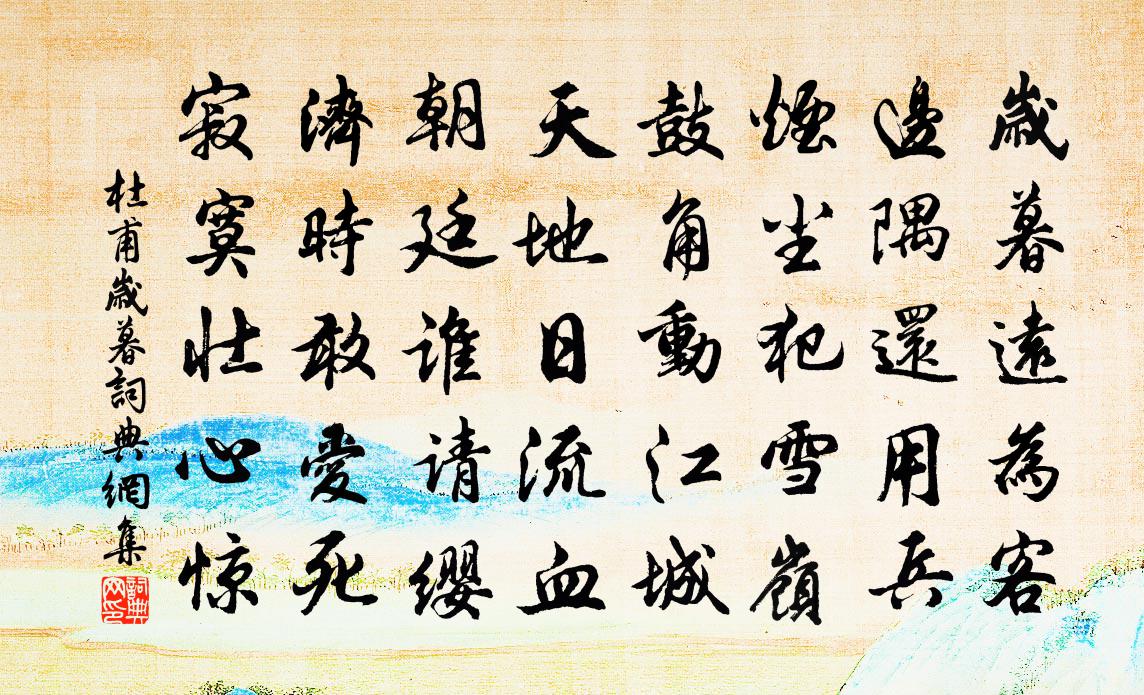 歲暮遠為客
邊隅還用兵
煙尘犯雪嶺
鼓角動江城
天地日流血
朝廷誰请纓
濟時敢愛死
寂寞壯心惊
杜甫歲暮詞典網集
詞典网印